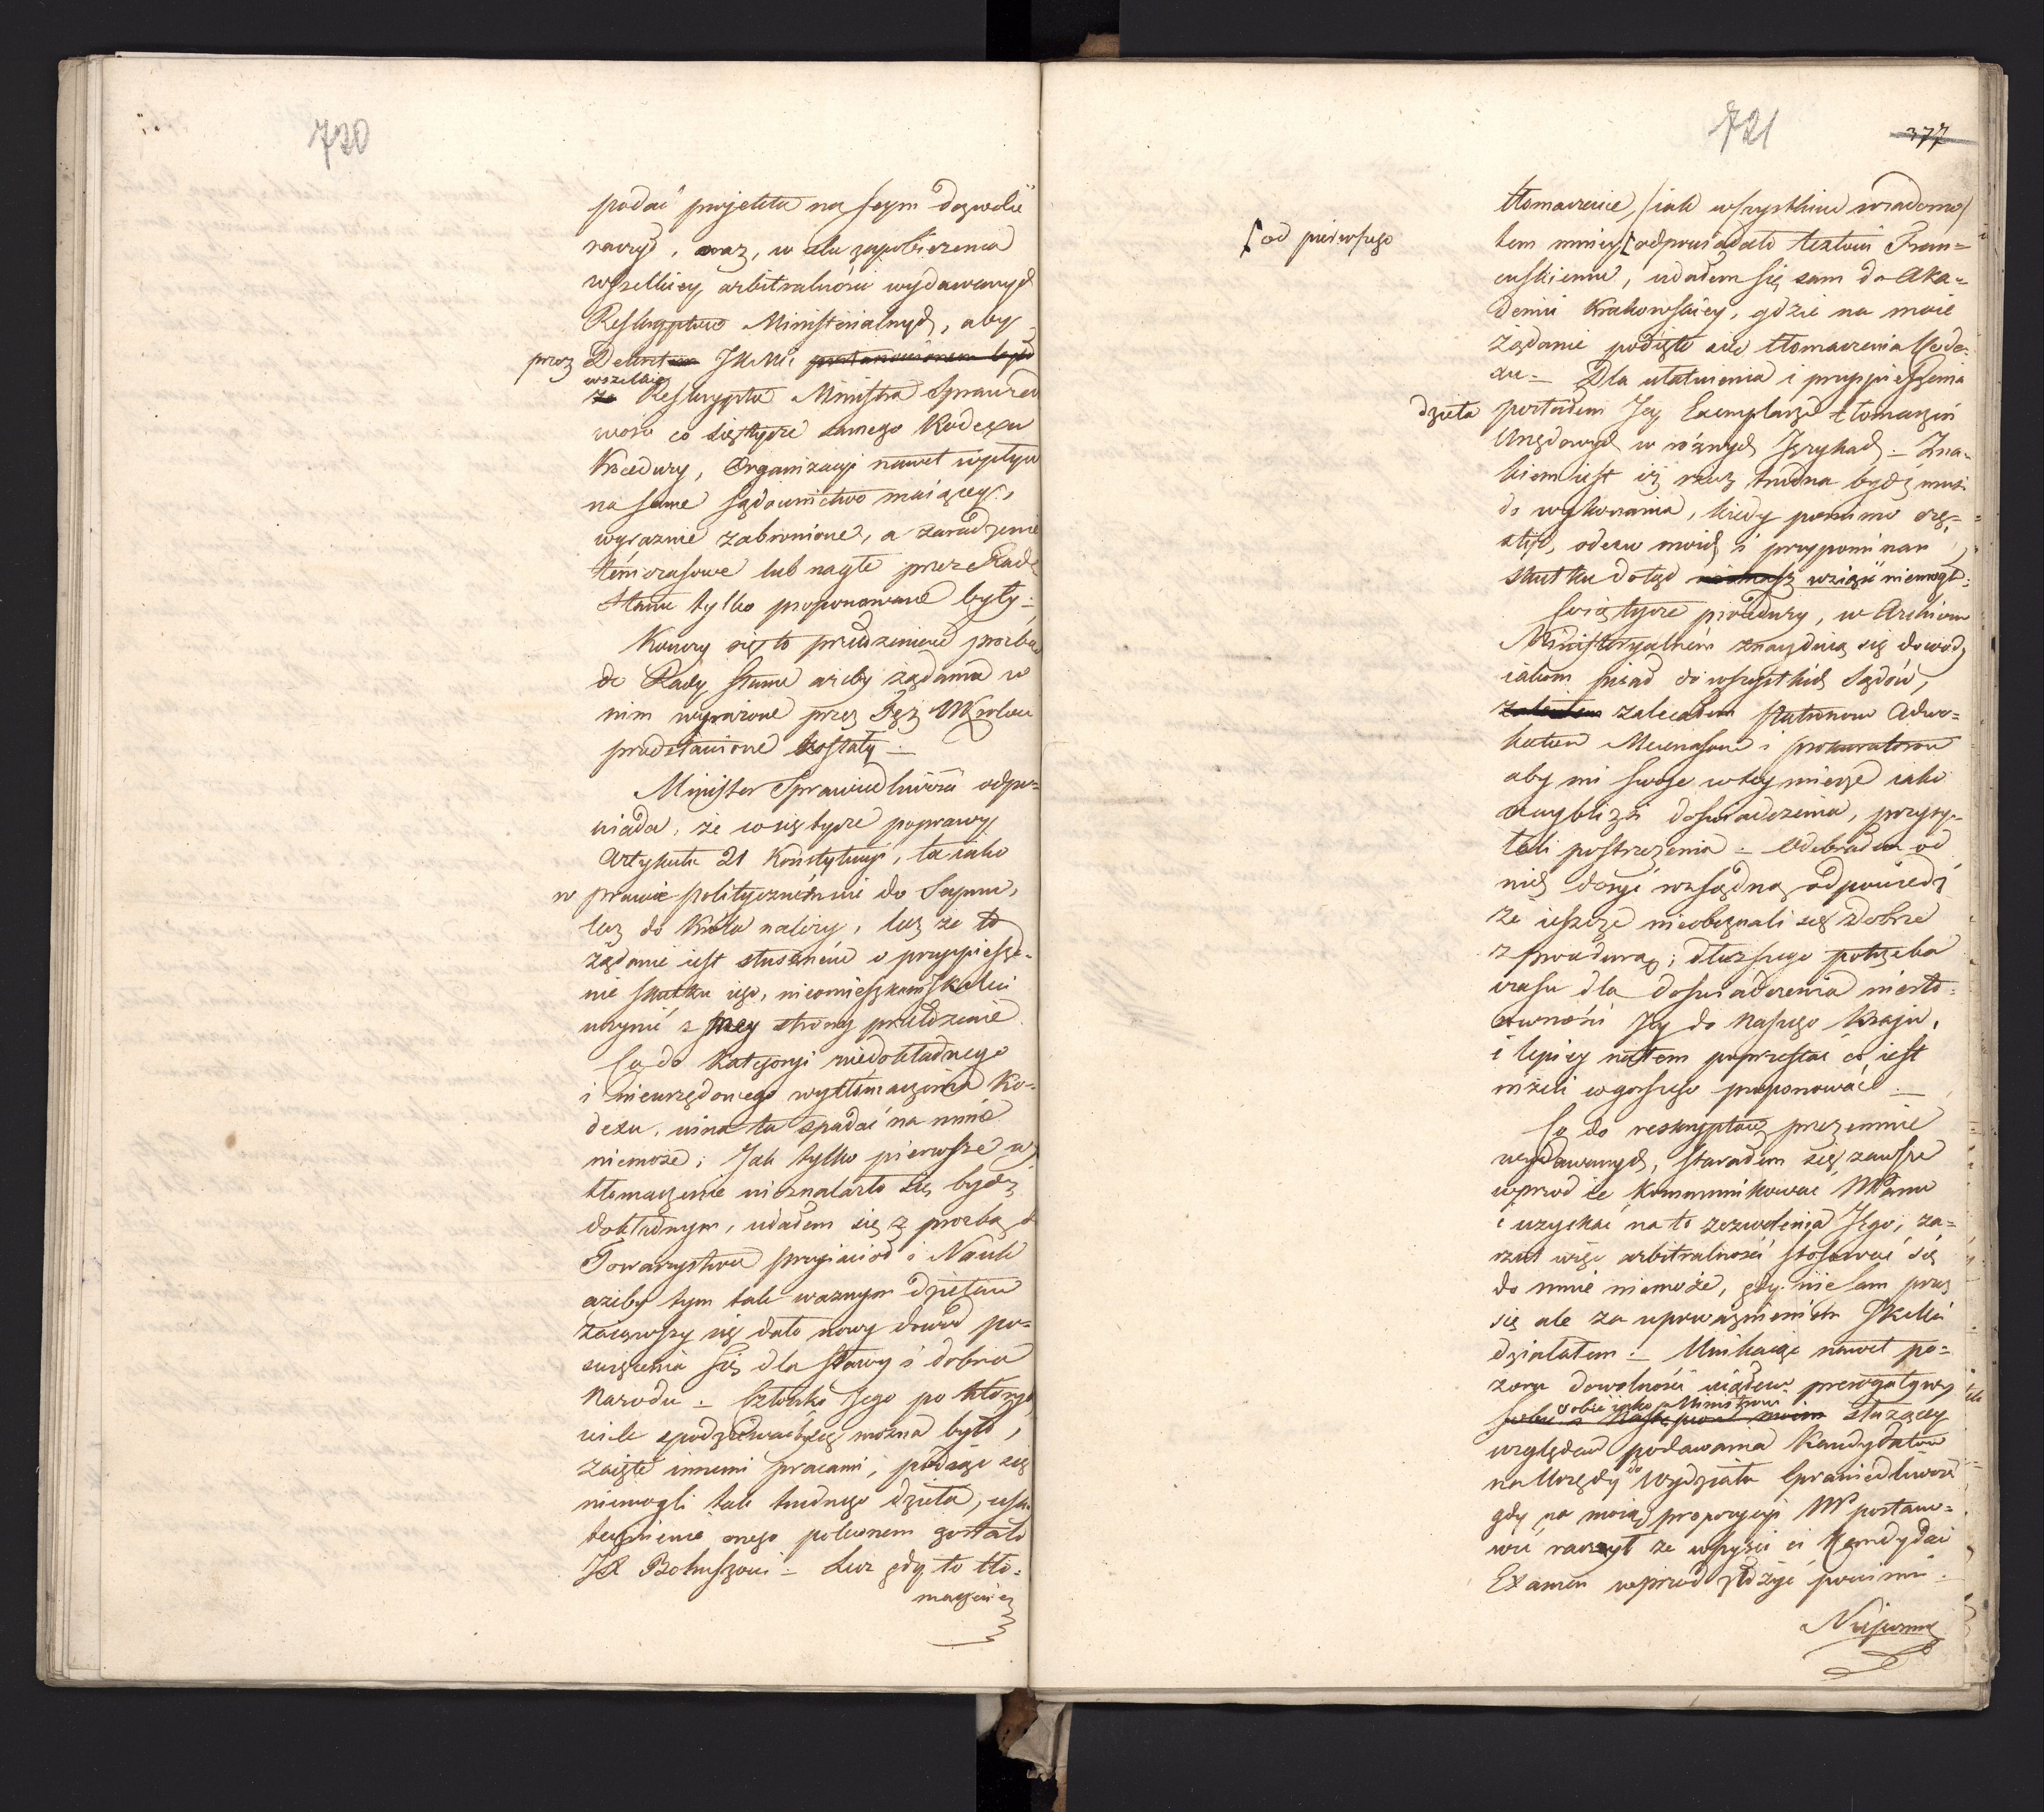 720
podać projekta na Seym dozwolić
raczył, oraz, w celu zapobieżenia
wszelkiey arbitralności wydawanych
Reskryptów Ministerialnych, aby
przez Dekret JKMci postanowionem było
wszelkie
że Reskrypta Ministra Sprawied
wości co się tycze samego Kodexu
Procedury, Organizacyi nawet wpływ
na same sądownictwo maiącey,
wyraznie zabronione, a zaradzenie
tymczasowe lub nagłe przez Radę
Stanu tylko proponowane były.
Kończy się to przedstawienie prozbą
do Rady Stanu ażeby żądania w
nim wyrażone przez Nią MKrolowi
przedstawione zostały —
Minister Sprawiedliwości odpo=
wiada, że co się tycze poprawy
Artykułu 21 Konstytucyi, ta iako
w prawie politycznem nie do Seymu,
lecz do Króla należy, lecz że to
żądanie iest słusznem o przyspiesze=
nie skutku iego, nieomieszkam JKMci
uczynić z mey strony przedstawienie
Co do Kategoryi niedokładnego
i nieurzędowego wytłomaczenia Ko=
dexu, wina ta spadać na mnie
niemoże; Jak tylko pierwsze
tłomaczenie nieznalazło się bydź
dokładnym, udałem się z prozbą do
Towarzystwa przyiaciół Nauk
ażeby tym tak ważnym dziełem
zaiąwszy się dało nowy dowód po=
święcenia się dla sławy i dobra
Narodu — Członki Jego po których
wiele spodziewać się można było,
zaięte innemi pracami, podiąć się
niemogli tak trudnego dzieła, usku
tecznienie onego polecone zostało
JX Bohuszowi — Lecz gdy to tło=
maczenie
721
377
tłomaczenie, /iak wszystkim wiadomo/
[od pierwszego
tem mniey [odpowiadało textowi Fran=
cuskiemu, udałem się sam do Aka=
demii Krakowskiey, gdzie na moie
żądanie podięto się tłomaczenia Kode=
xu — Dla ułatwienia i przyspieszenia
dzieła posłałem Jey Exemplarze tłomaczeń
Urzędowych w różnych Językach — Zna=
kiem iest iż rzecz trudna bydź musi
do wykonania, kiedy pomimo czę=
stych, odezw moich i przypominań
skutku dotąd wziąść niemogł.
Co się tycze procedury, w Archiwum
Ministeryalnem znayduią się dowody
iakom pisał do wszystkich Sądów,
zalecałem Patronom Adwo=
katom Mecenasom i prokuratorom
aby mi swoje w tey mierze iako
naybliżsi doświadczenia, przysy=
łali postrzeżenia — Odebrałem od
nich dosyć rozsądną odpowiedź
że ieszcze nieobeznali się dobrze
z procedurą; dłuższego potrzeba
czasu dla doświadczenia niesto=
sowności Jey do Naszego Kraju,
i lepiey natem poprzestać co iest
niżeli co gorszego proponować —
Co do reskryptów przezemnie
wydawanych, starałem się zawsze
wprzód ie kommunikować WPanu
i uzyskać na to zezwolenia Jego; za=
rzut więc arbitralności stosować się
do mnie niemoże, gdy nie sam przez
się ale za upoważnieniem JKMci
działałem — Unikaiąc nawet po=
zoru dowolności prerogatywy
sobie iako Ministrowi
służącey
względem podawania Kandydatów
na Urzędy do Wydziału Sprawiedliwości
gdy na moią propozycyi WP postano=
wić raczył że wszyscy ci Kandydaci
Examen wprzód złożyć powinni —